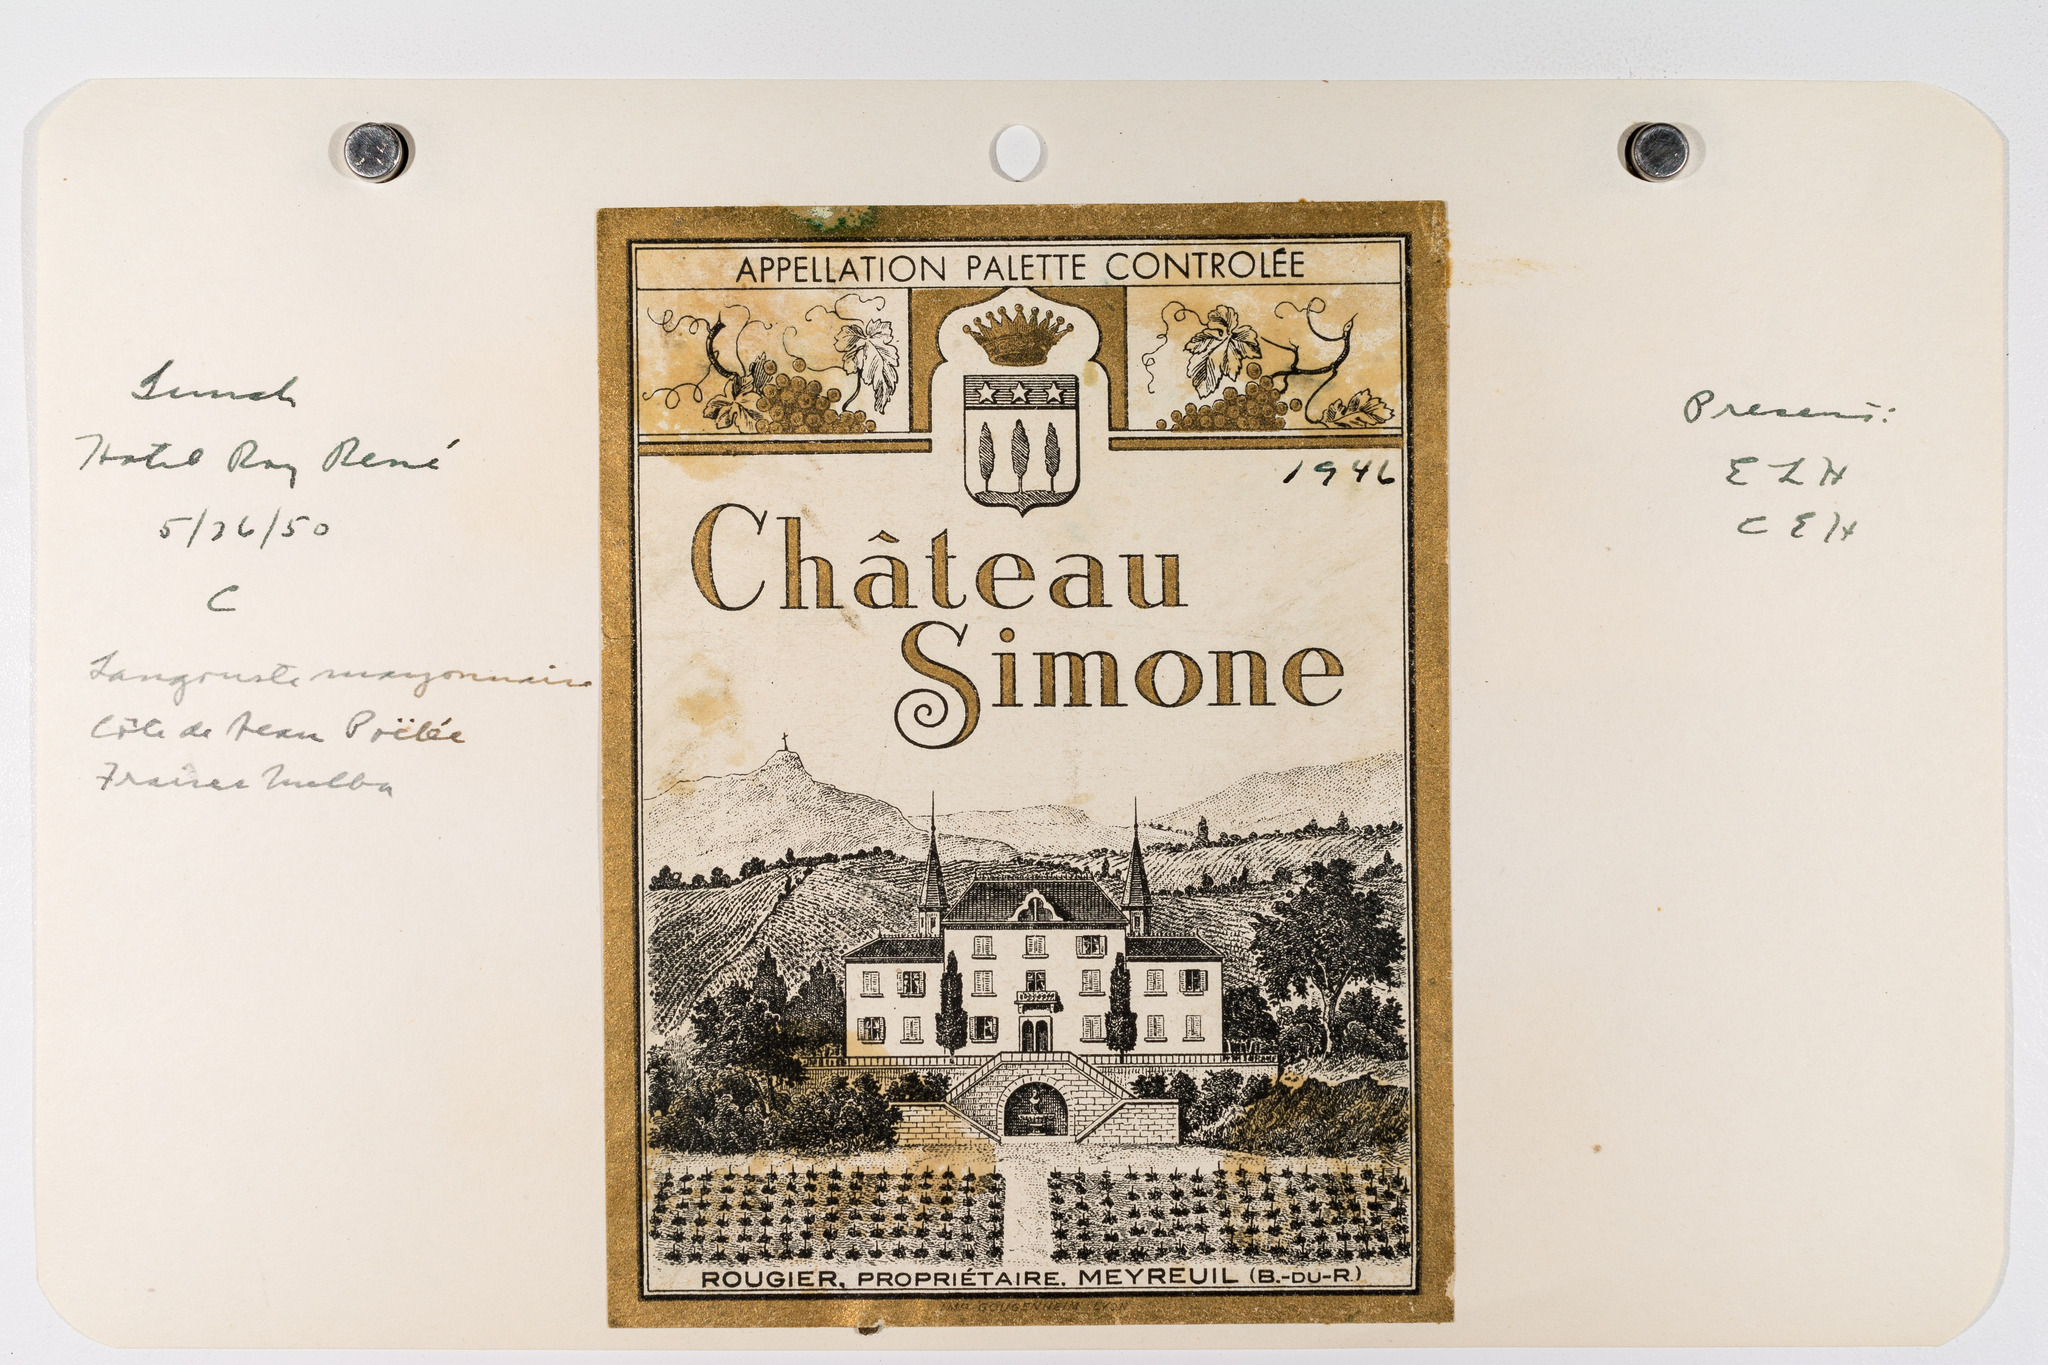 Lunch
Hotel Roy René
5/26/50
C
Langouste mayonnaise
Côte de veau Poëlée
Fraises Melba
APPELLATION PALETTE CONTROLÉE
1946
Château
Simone
ROUGIER, PROPRIÉTAIRE. MEYREUIL (B.-DU-R.)
IMP. GOUGENHEIM LYON
Present:
E L H
C E H